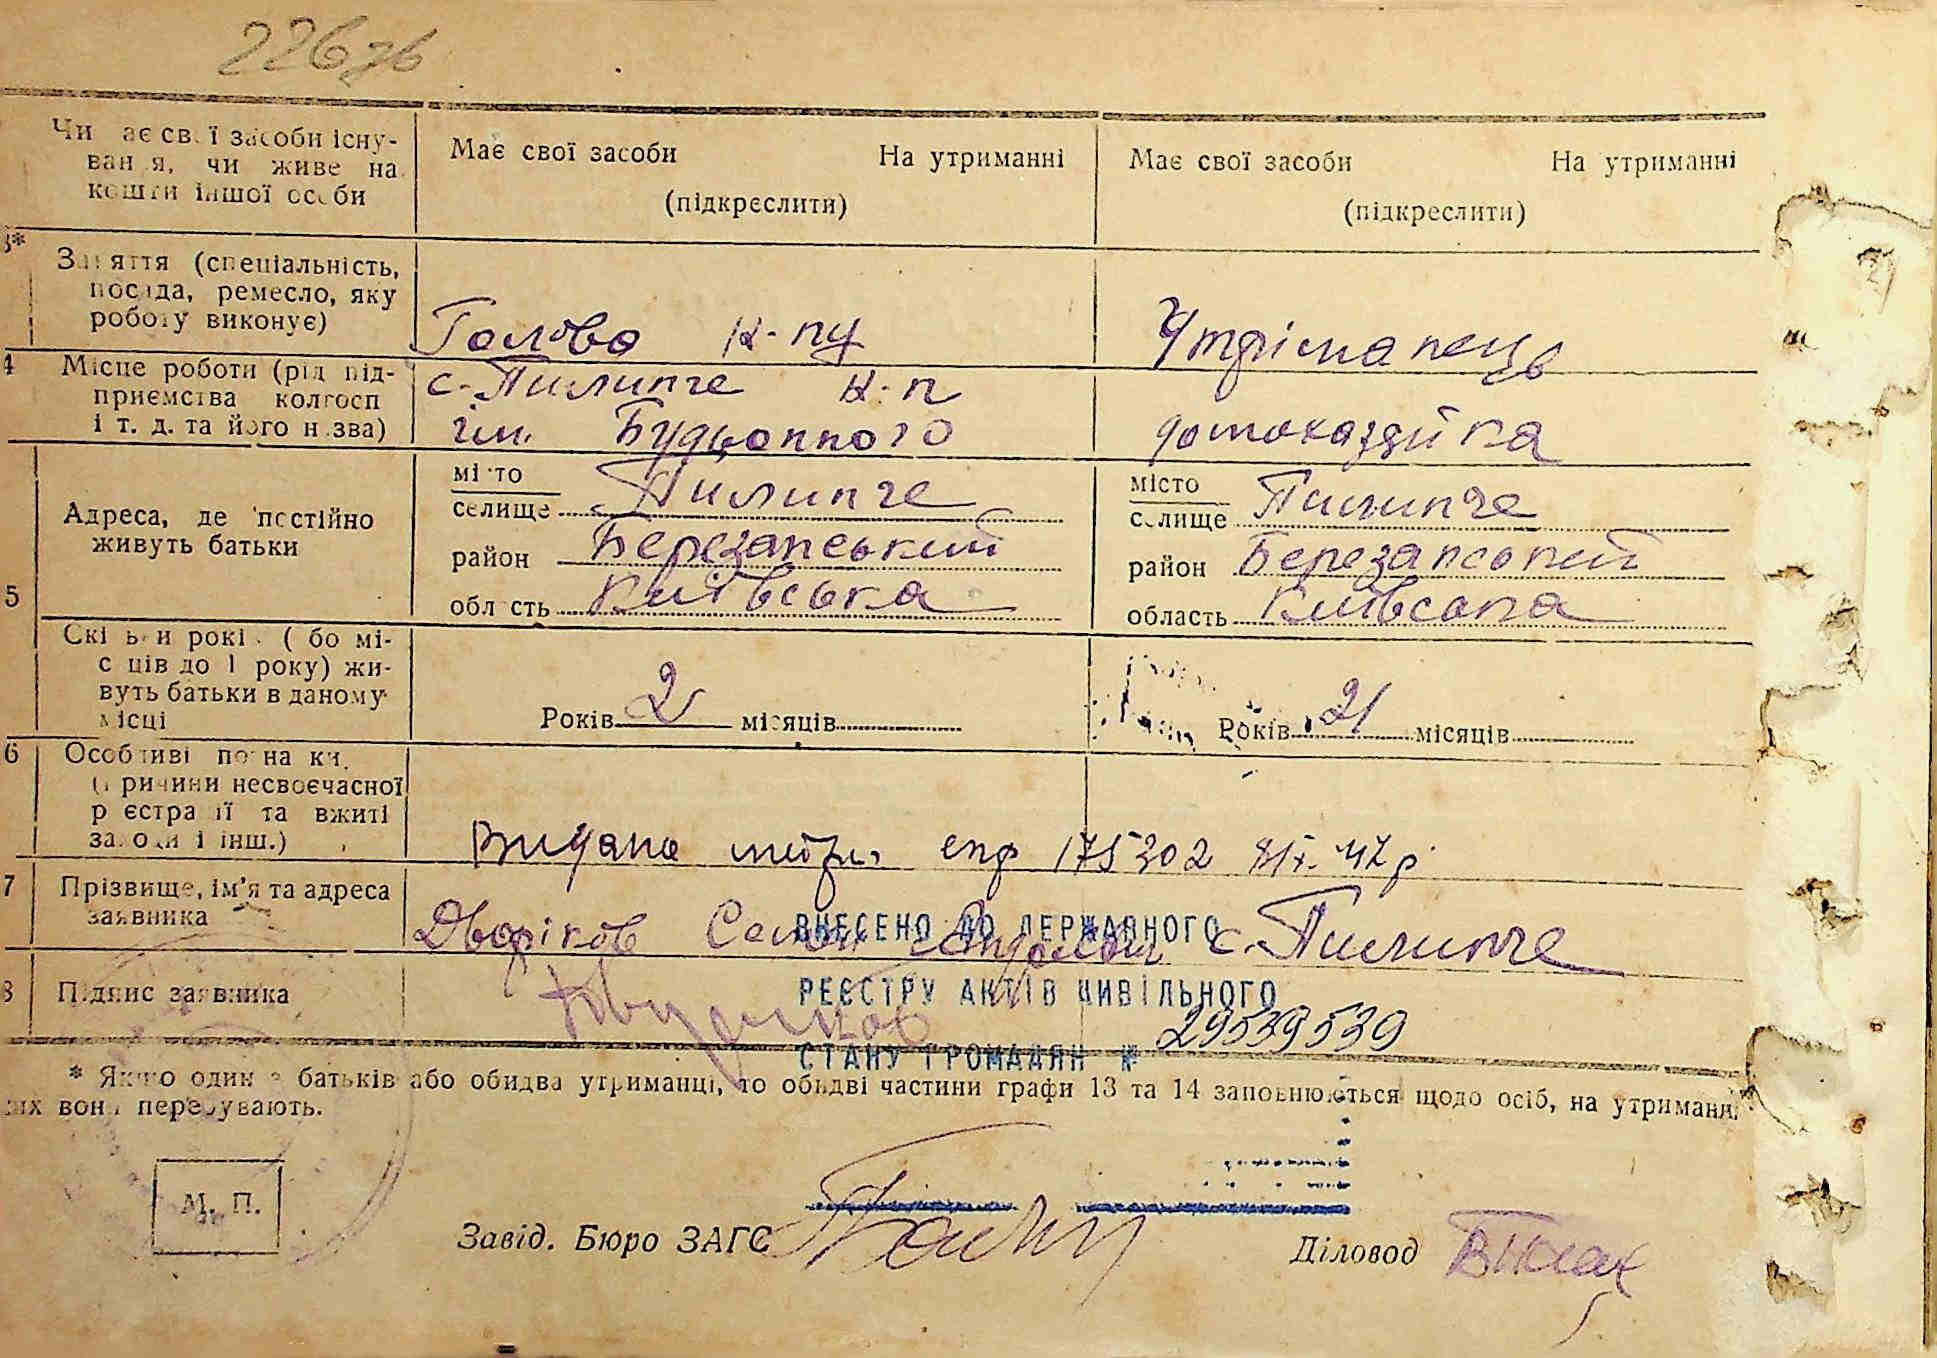 226 зв
Чи має свої засоби існу-
вання, чи живе на
кошти іншої особи
Має свої засоби На утриманні
(підкреслити)
Має свої засоби На утриманні
(підкреслити)
3*
Заняття (спеціальність,
посада, ремесло, яку
роботу виконує)
Голова к-пу
Утріманець
4
Місце роботи (рід під-
приємства колгосп
і т. д. та його назва)
с. Пилипче к-п
ім. Будьонного
домохазяйка
5
Адреса, де постійно
живуть батьки
місто
селище Пилипче
район Березанський
область Київська
місто
селище Пилипче
район Березанський
область Київська
Скільки років (або мі-
сяців до 1 року) жи-
вуть батьки в даному
місці
Років 2 місяців
Років 21 місяців
6
Особливі познаки.
(причини несвоєчасної
реєстрації та вжиті
заходи і інш.)
Видана метр. 175302
7
Прізвище, ім'я та адреса
заявника
с. Пилипче
ВНЕСЕНО ДО ДЕРЖАВНОГО
РЕЄСТРУ АКТІВ ЦИВІЛЬНОГО
СТАНУ ГРОМАДЯН № 29539539
8
Підпис заявника
* Якщо один з батьків або обидва утриманці, то обидві частини графи 13 та 14 заповнюються щодо осіб, на утриманні
яких вони перебувають.
М. П.
Завід. Бюро ЗАГС
Діловод